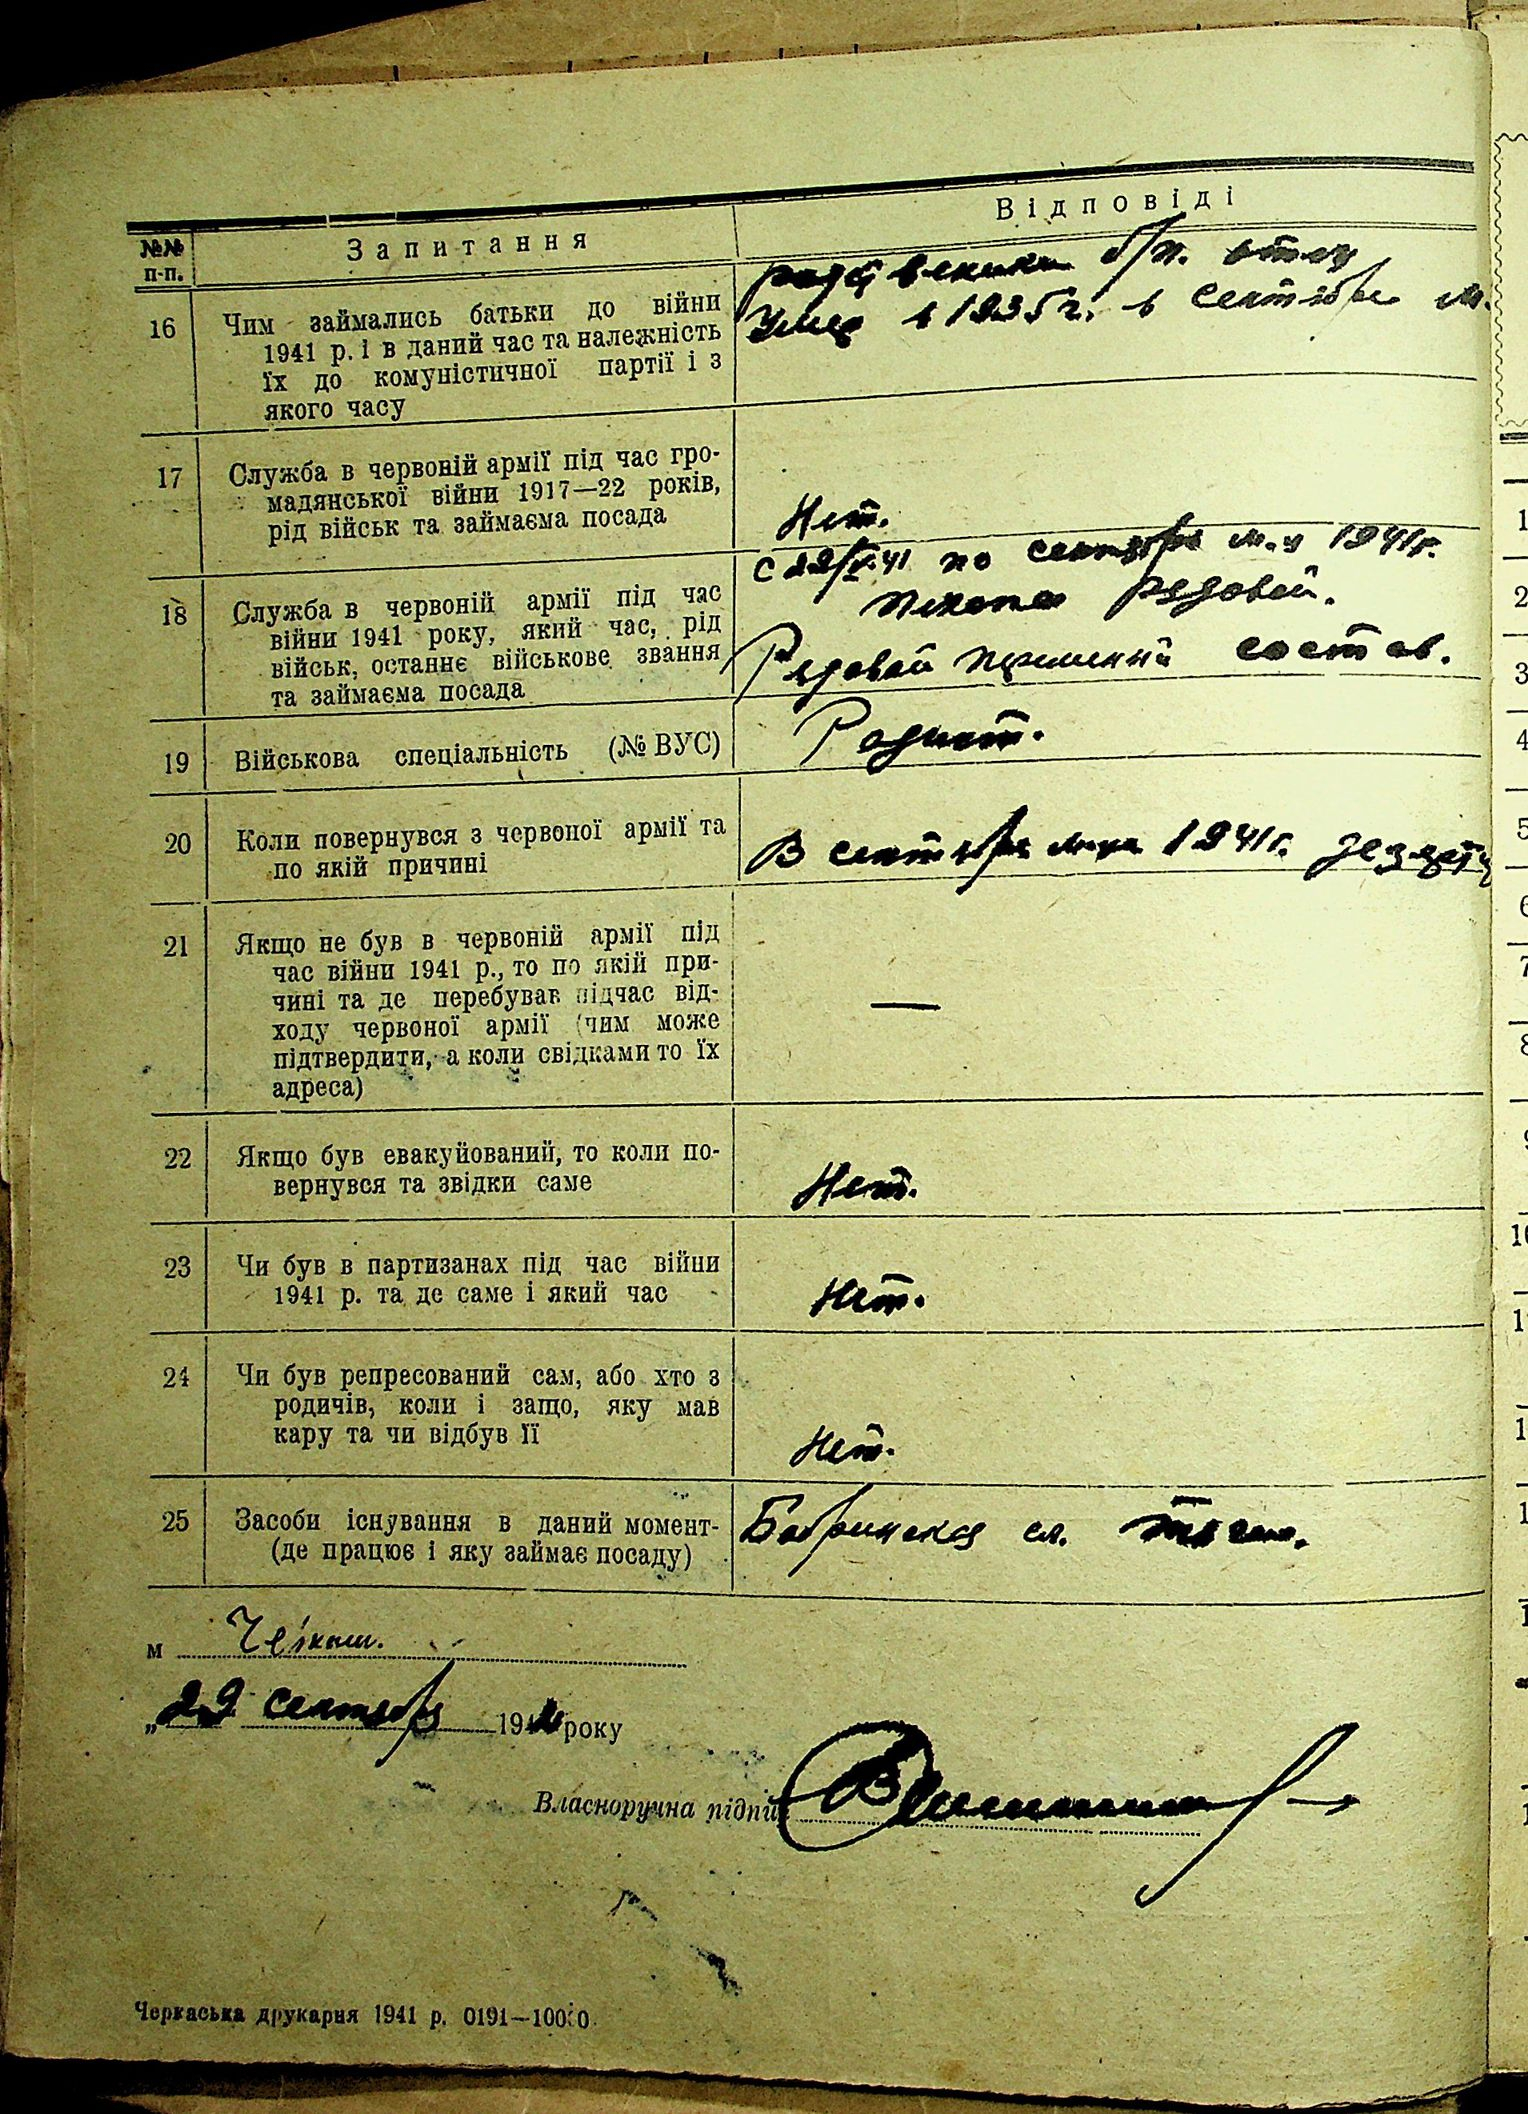 №№ п-п.
Запитання
Відповіді
16
Чим займались батьки до війни
1941 р. і в даний час та належність
їх до комуністичної партії і з
якого часу
б/п. отец
Умер в 1935 г. в сентябре м.
17
Служба в червоній армії під час гро-
мадянської війни 1917—22 років,
рід військ та займаєма посада
Нет.
18
Служба в червоній армії під час
війни 1941 року, який час, рід
військ, останнє військове звання
та займаєма посада
с 22/ 41 по сентябрь м-ц 1941 г.
пехота рядовой.
Рядовой состав.
19
Військова спеціальність (№ ВУС)
Радист.
20
Коли повернувся з червоної армії та
по якій причині
В сентябре 1941 г.
21
Якщо не був в червоній армії під
час війни 1941 р., то по якій при-
чині та де перебував підчас від-
ходу червоної армії (чим може
підтвердити, а коли свідками то їх
адреса)
—
22
Якщо був евакуйований, то коли по-
вернувся та звідки саме
Нет.
23
Чи був в партизанах під час війни
1941 р. та де саме і який час
Нет.
24
Чи був репресований сам, або хто з
родичів, коли і защо, яку мав
кару та чи відбув її
Нет.
25
Засоби існування в даний момент-
(де працює і яку займає посаду)
Бобринская ст.
м
„29 сентября 1942 року
Власноручна підпис
Черкаська друкарня 1941 р. 0191—10000